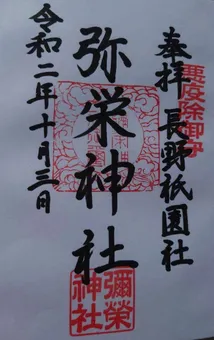 悪疫除御守
奉拝 長野祇園社
弥栄神社
彌榮神社
令和二年十月三日